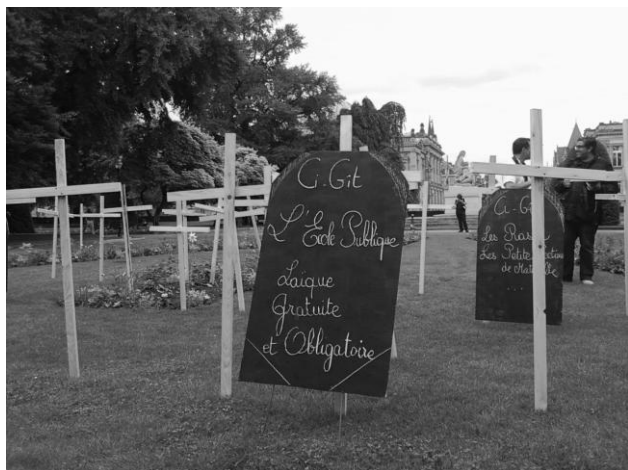 Ci-Git
L'École Publique
Laïque
Gratuite
et Obligatoire
Ci-G
Les Rased
Les Petite Section
de Mat lle
...